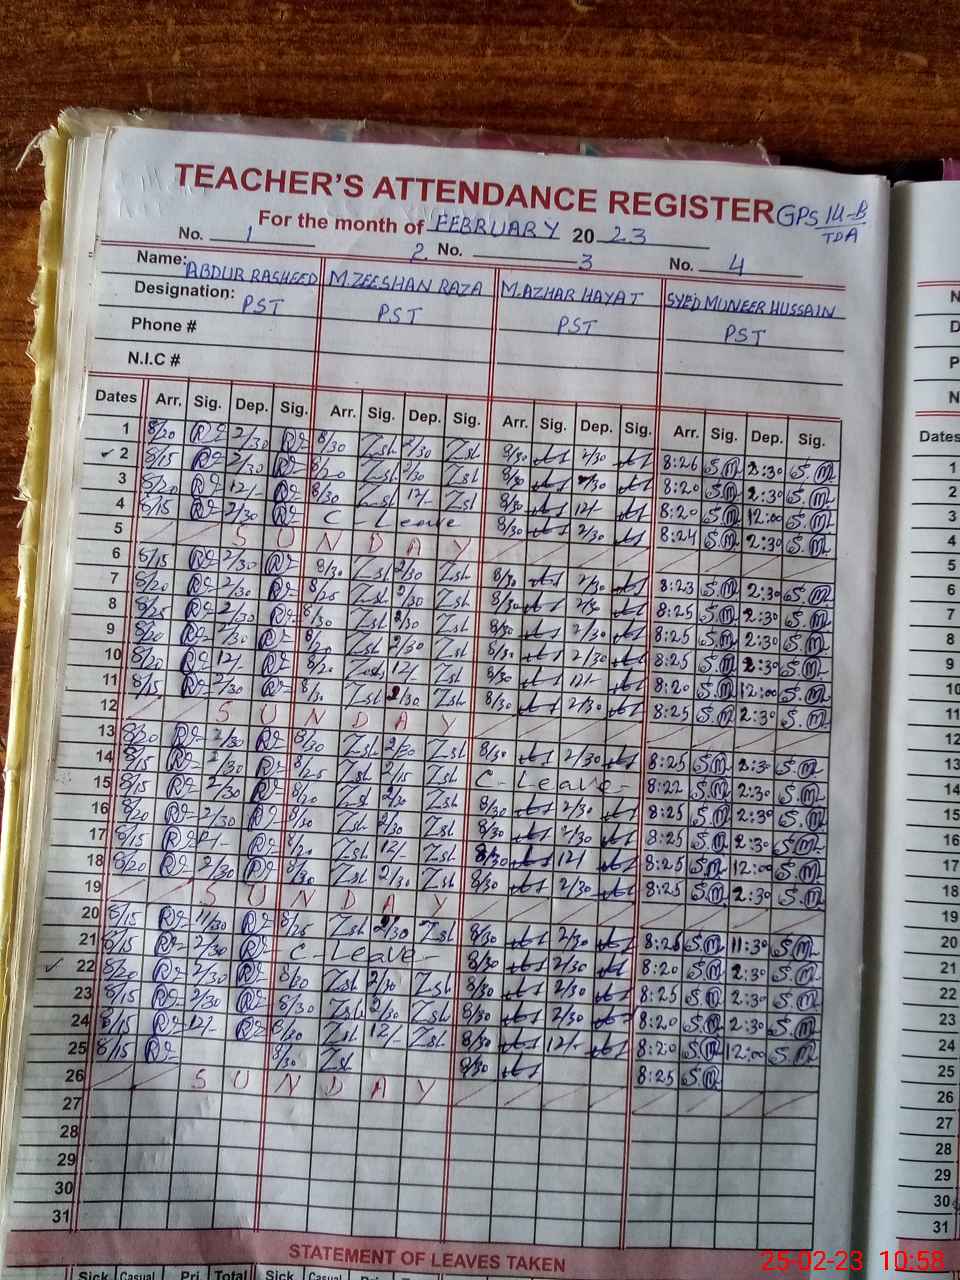 TEACHER'S ATTENDANCE REGISTER GPS 14-B
TDA
For the month of FEBRUARY 20 23
No. 1 2 No. 3 No. 4
Name: ABDUR RASHEED M.ZEESHAN RAZA M.AZHAR HAYAT SYED MUNEER HUSSAIN
Designation: PST PST PST PST
Phone #
N.I.C #
Dates Arr. Sig. Dep. Sig. Arr. Sig. Dep. Sig. Arr. Sig. Dep. Sig. Arr. Sig. Dep. Sig.
1 8/20 2/30 8/30 Zsh 2/30 Zsh 8/30 2/30 8:26 S.M 2:30 S.M
2 8/15 2/30 8/20 Zsh 2/30 Zsh 8/30 2/30 8:20 S.M 2:30 S.M
3 8/20 12/- 8/30 Zsh 12/- Zsh 8/30 12/- 8:20 S.M 12:00 S.M
4 8/15 2/30 C-Leave 8/30 2/30 8:24 S.M 2:30 S.M
5 SUNDAY
6 8/15 2/30 8/30 Zsh 2/30 Zsh 8/30 2/30 8:23 S.M 2:30 S.M
7 8/20 2/30 8/25 Zsh 2/30 Zsh 8/30 2/30 8:25 S.M 2:30 S.M
8 8/25 2/30 8/30 Zsh 2/30 Zsh 8/30 2/30 8:25 S.M 2:30 S.M
9 8/20 2/30 8/20 Zsh 2/30 Zsh 8/30 2/30 8:25 S.M 2:30 S.M
10 8/20 12/- 8/20 Zsh 12/- Zsh 8/30 12/- 8:20 S.M 12:00 S.M
11 8/15 2/30 8/30 Zsh 2/30 Zsh 8/30 2/30 8:25 S.M 2:30 S.M
12 SUNDAY
13 8/20 2/30 8/30 Zsh 2/30 Zsh 8/30 2/30 8:25 S.M 2:30 S.M
14 8/15 2/30 8/25 Zsh 2/15 Zsh C-Leave- 8:22 S.M 2:30 S.M
15 8/15 2/30 8/20 Zsh 2/30 Zsh 8/30 2/30 8:25 S.M 2:30 S.M
16 8/20 2/30 8/30 Zsh 2/30 Zsh 8/30 2/30 8:25 S.M 2:30 S.M
17 8/15 12/- 8/20 Zsh 12/- Zsh 8/30 12/ 8:25 S.M 12:00 S.M
18 8/20 2/30 8/30 Zsh 2/30 Zsh 8/30 2/30 8:25 S.M 2:30 S.M
19 SUNDAY
20 8/15 11/30 8/25 Zsh 2/30 Zsh 8/30 2/30 8:26 S.M 11:30 S.M
21 8/15 2/30 C-Leave- 8/30 2/30 8:20 S.M 2:30 S.M
22 8/20 2/30 8/30 Zsh 2/30 Zsh 8/30 2/30 8:25 S.M 2:30 S.M
23 8/15 2/30 8/30 Zsh 2/30 Zsh 8/30 2/30 8:20 S.M 2:30 S.M
24 8/15 12/- 8/30 Zsh 12/- Zsh 8/30 12/- 8:20 S.M 12:00 S.M
25 8/15 8/30 Zsh 8/30 8:25 S.M
26 SUNDAY
27
28
29
30
31
STATEMENT OF LEAVES TAKEN
Sick Casual Pri Total Sick Casual
Dates
1
2
3
4
5
6
7
8
9
10
11
12
13
14
15
16
17
18
19
20
21
22
23
24
25
26
27
28
29
30
31
25-02-23 10:58